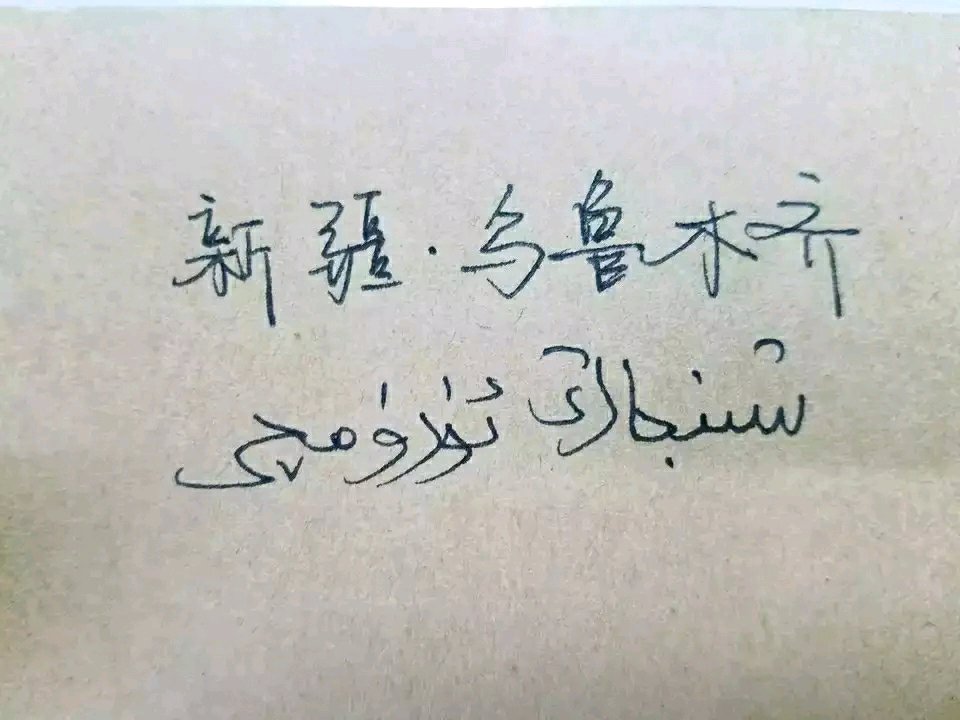 新疆·乌鲁木齐
شىنجاڭ ئۈرۈمچى